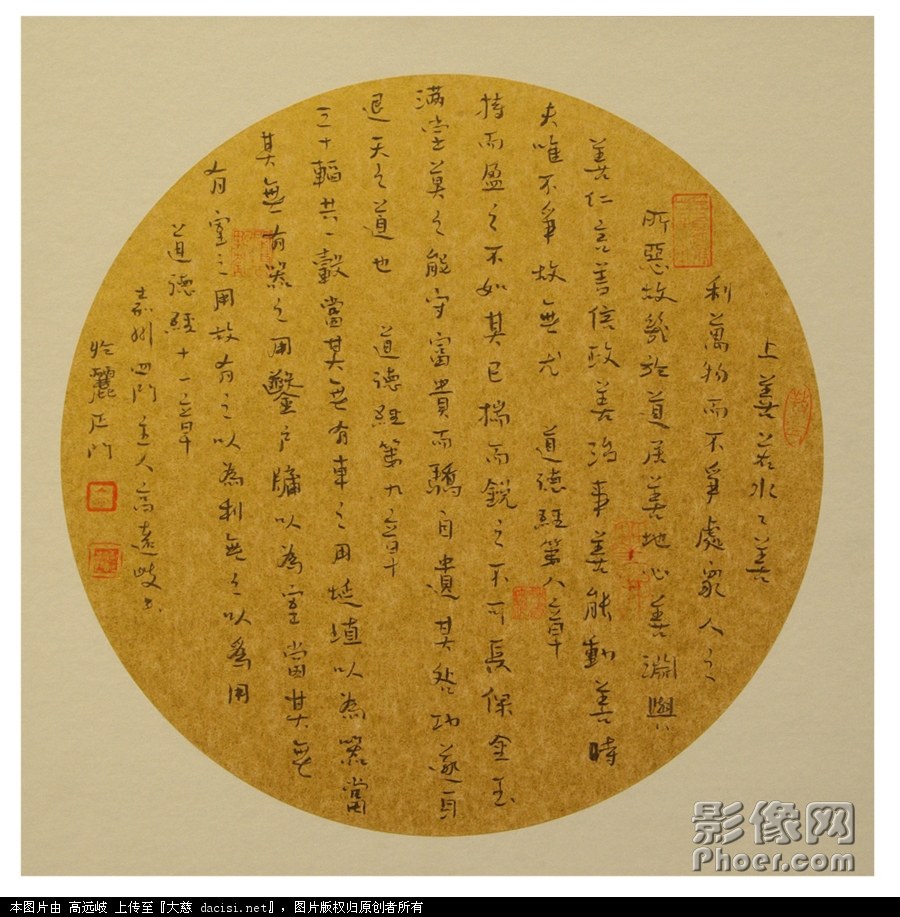 上善若水〻善
利萬物而不爭處眾人之
所惡故幾於道居善地心善淵與
善仁言善信政善治事善能動善時
夫唯不爭故無尤 道德經第八章
持而盈之不如其已揣而銳之不可長保金玉
滿堂莫之能守富貴而驕自遺其咎功遂身
退天之道也 道德經第九章
三十輻共一轂當其無有車之用埏埴以為器當
其無有器之用鑿戶牖以為室當其無
有室之用故有之以為利無之以為用
道德經十一章
嘉州四門主人高遠岐書
於麗正門
影像网
Phoer.com
本图片由 高远岐 上传至『大慈 dacisi.net』，图片版权归原创者所有